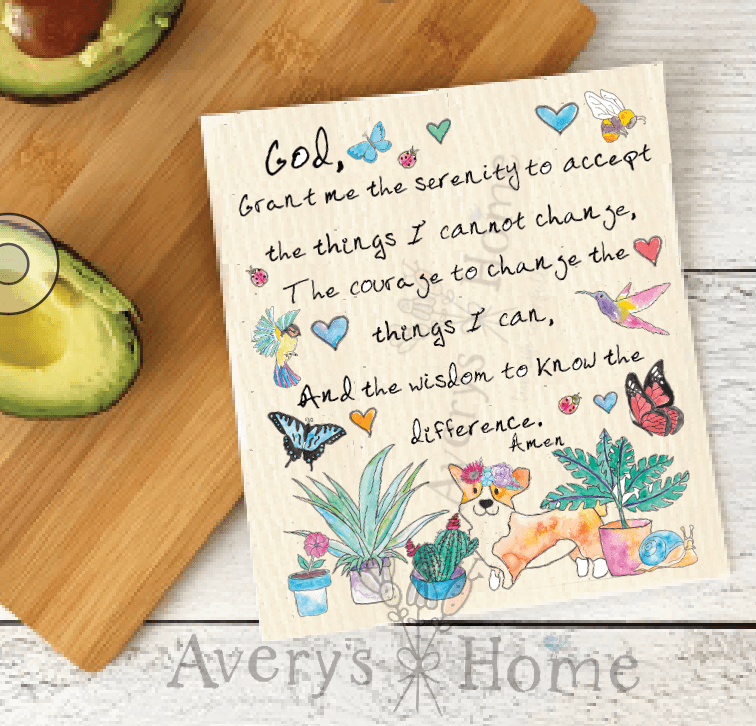 God,
Grant me the serenity to accept
the things I cannot change,
The courage to change the
things I can,
And the wisdom to know the
difference.
Amen
Avery's Home
Avery's Home